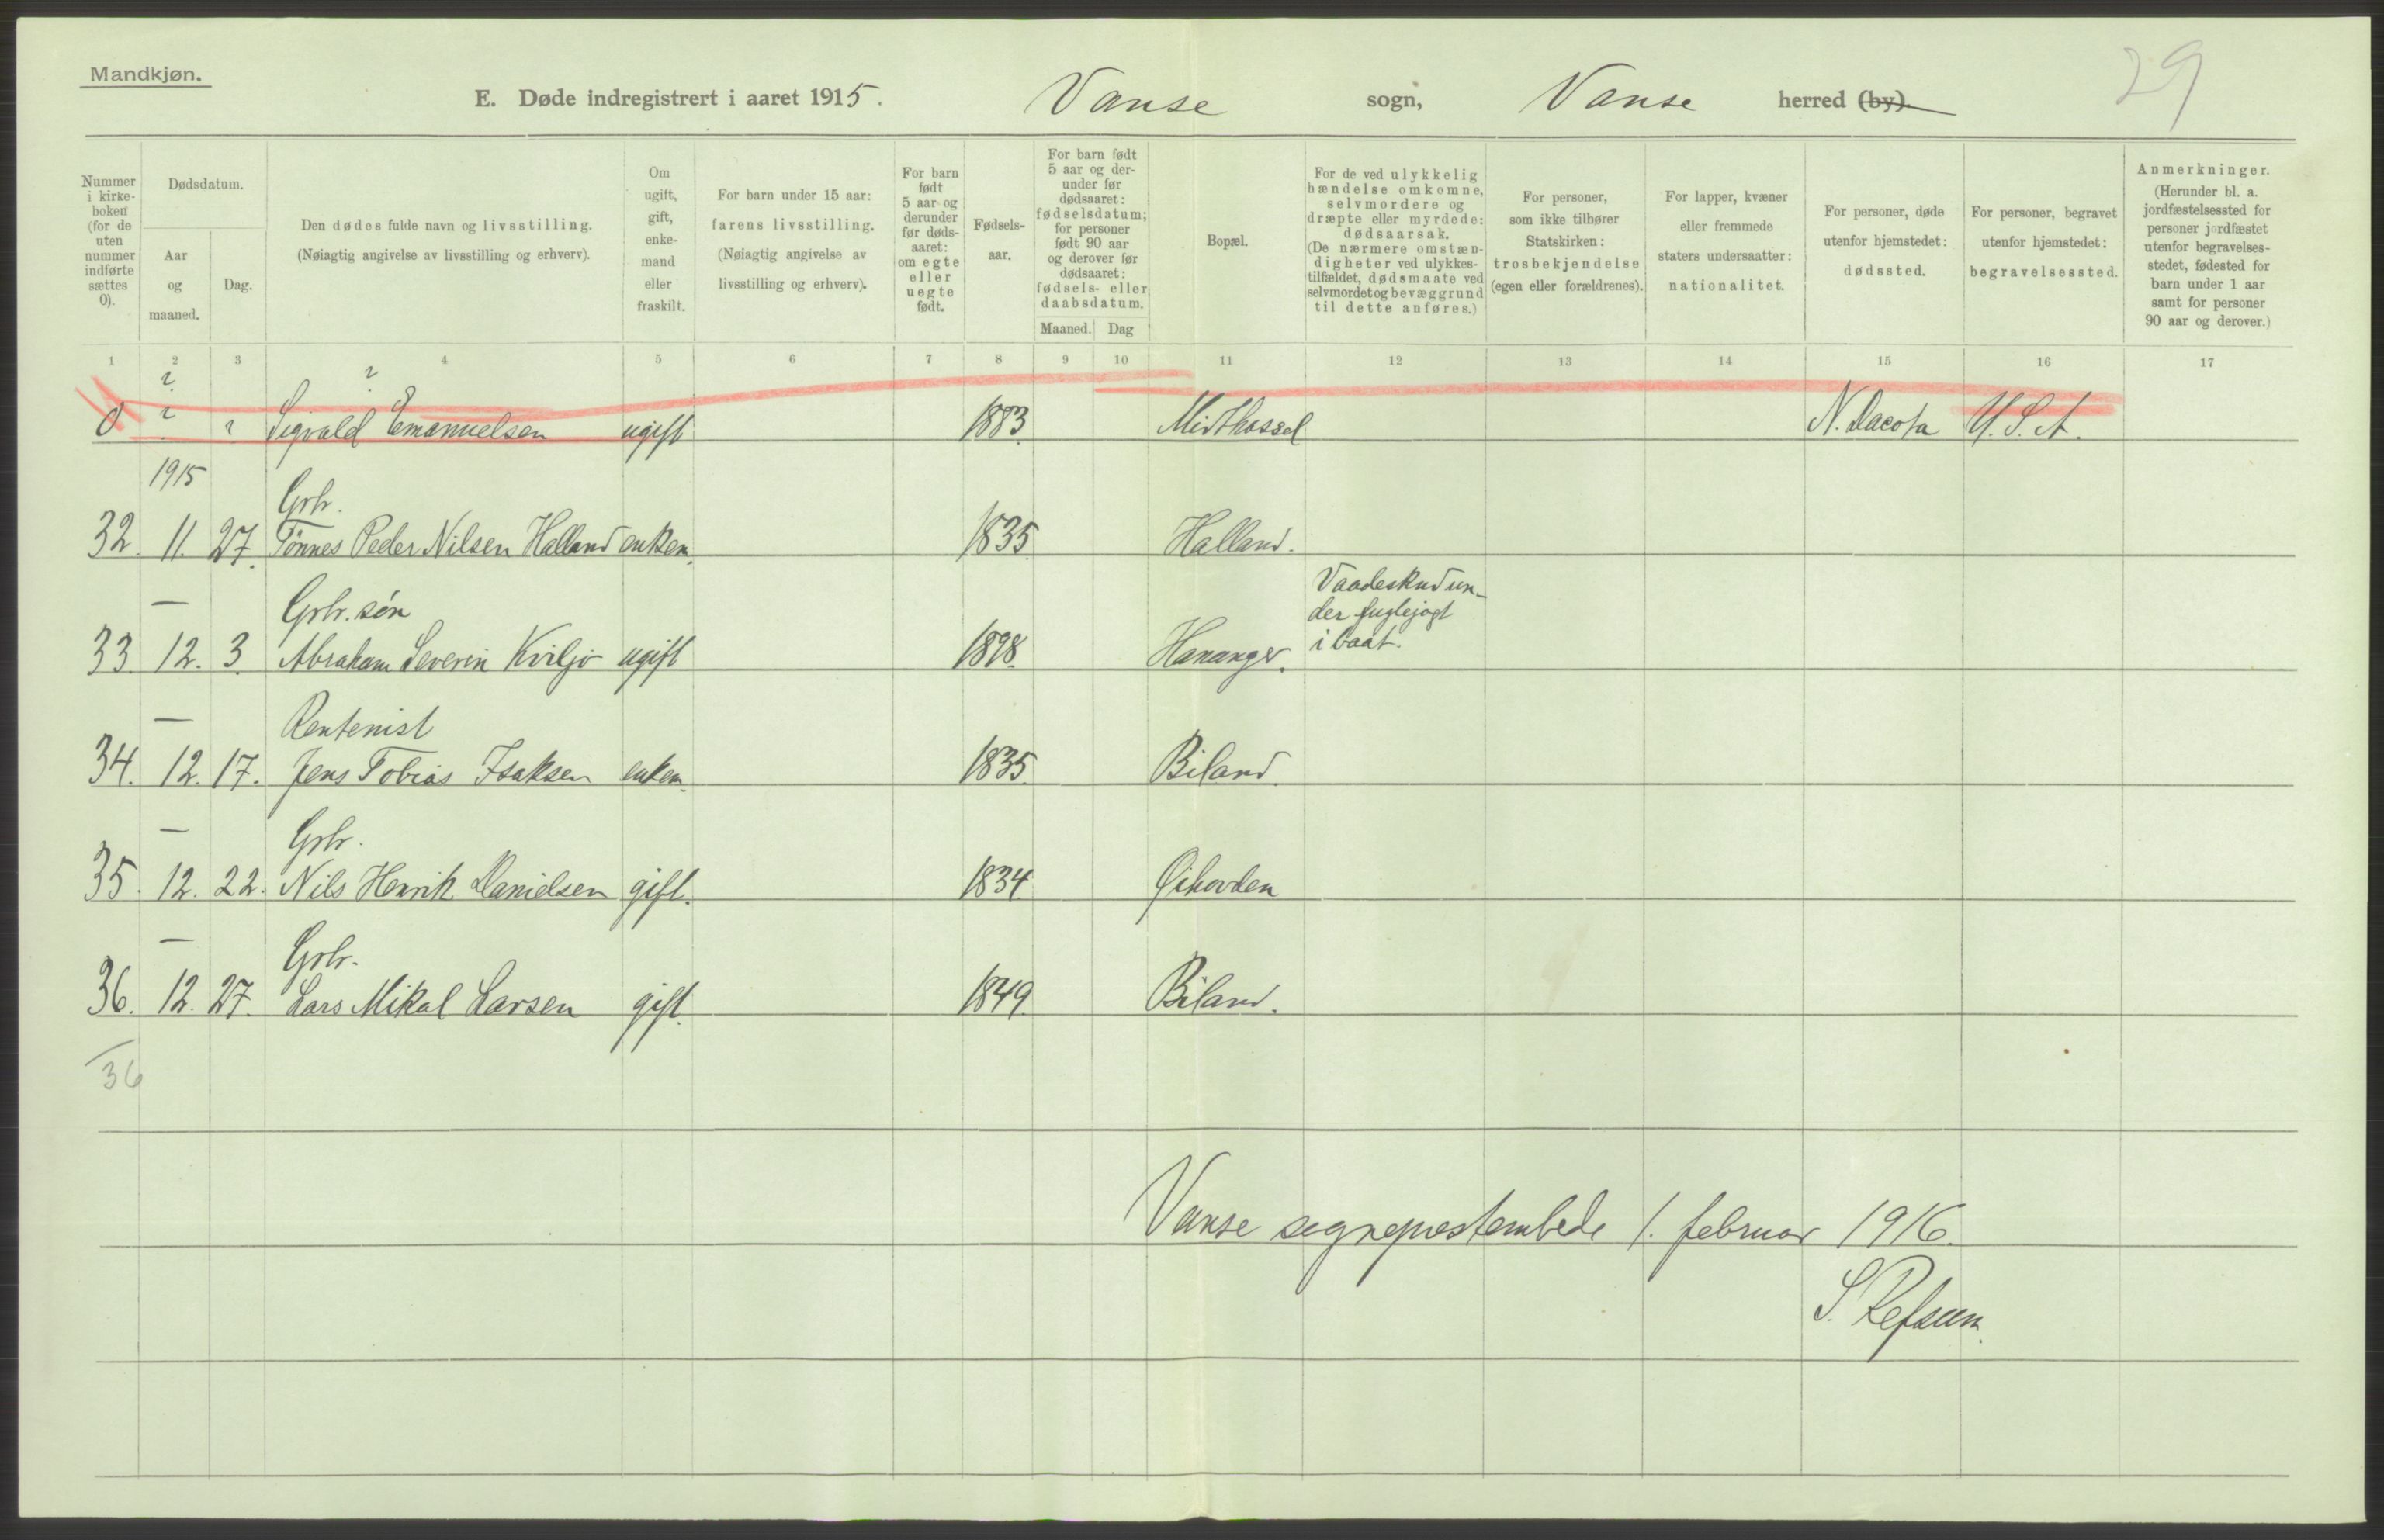 Mandkjøn.
29
E. Døde indregistrert i aaret 1915. Vanse sogn, Vanse herred (by).
Nummer i kirkeboken (for de uten nummer indførte sættes 0).
Dødsdatum.
Aar og maaned.
Dag.
Den dødes fulde navn og livsstilling.
(Nøiagtig angivelse av livsstilling og erhverv).
Om ugift, gift, enkemand eller fraskilt.
For barn under 15 aar: farens livsstilling.
(Nøiagtig angivelse av livsstilling og erhverv).
For barn født 5 aar og derunder før dødsaaret: om egte eller uegte født.
Fødselsaar.
For barn født 5 aar og derunder før dødsaaret: fødselsdatum; for personer født 90 aar og derover før dødsaaret: fødsels- eller daabsdatum.
Maaned. Dag
Bopæl.
For de ved ulykkelig hændelse omkomne, selvmordere og dræpte eller myrdede: dødsaarsak.
(De nærmere omstændigheter ved ulykkestilfældet, dødsmaate ved selvmordet og bevæggrund til dette anføres.)
For personer, som ikke tilhører Statskirken: trosbekjendelse (egen eller forældrenes).
For lapper, kvæner eller fremmede staters undersaatter: nationalitet.
For personer, døde utenfor hjemstedet: dødssted.
For personer, begravet utenfor hjemstedet: begravelsessted.
Anmerkninger.
(Herunder bl. a. jordfæstelsessted for personer jordfæstet utenfor begravelsesstedet, fødested for barn under 1 aar samt for personer 90 aar og derover.)
1 2 3 4 5 6 7 8 9 10 11 12 13 14 15 16 17
? ?
0 ? ? Sigvald Emanuelsen ugift 1883 Midthassel N. Dacota U. S. A.
1915 Grbr.
32. 11. 27. Tönnes Peder Nilsen Halland enkem. 1835 Halland.
— Grbr. søn Vaadeskud un-
der fuglejagt
33. 12. 3. Abraham Severin Kviljo ugift 1898. Hananger. i baat.
— Rentenist
34. 12. 17. Jens Tobias Isaksen enkem. 1835. Biland.
— Grbr.
35. 12. 22. Nils Henrik Danielsen gift. 1834. Øihovden
— Grbr.
36. 12. 27. Lars Mikal Larsen gift. 1849. Biland.
36
Vanse sogneprestembede 1. februar 1916.
S. Refsum.